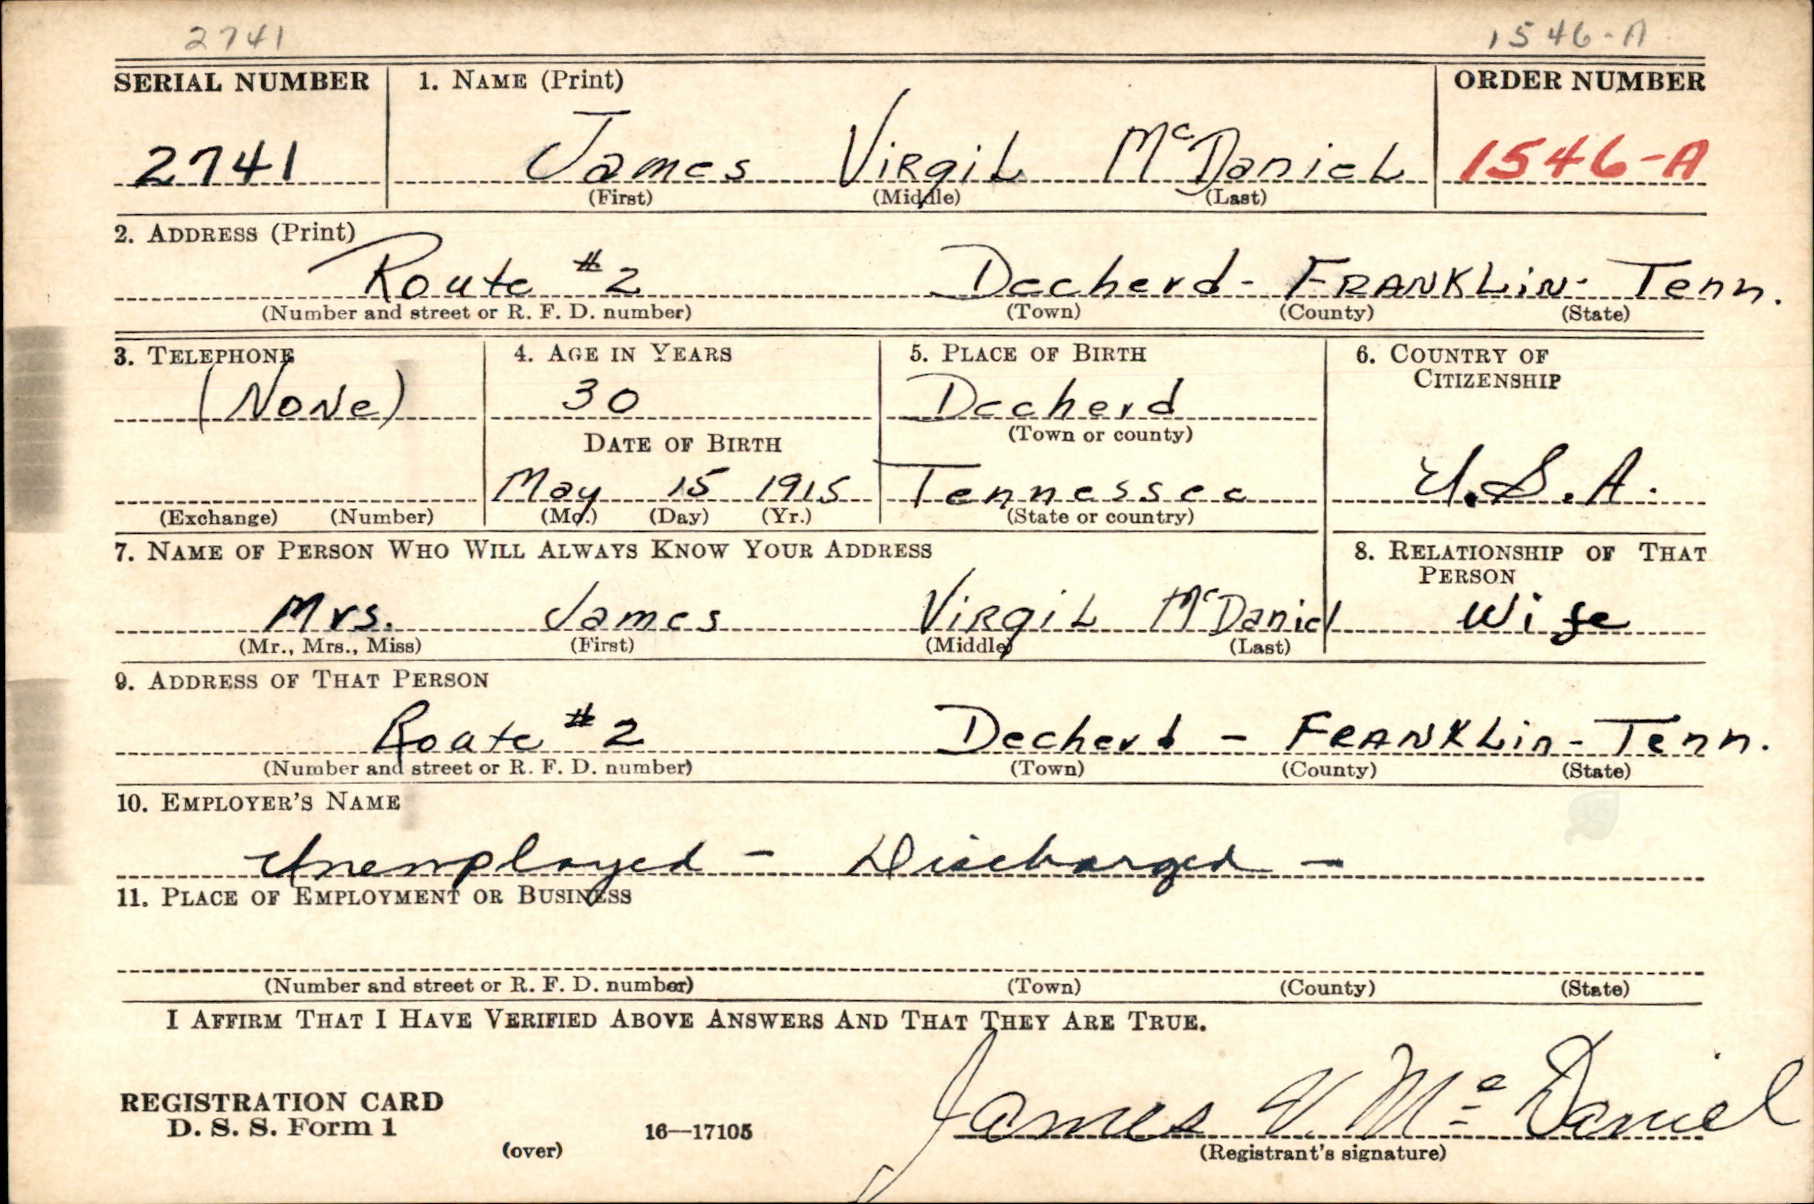 2741 1546-A
SERIAL NUMBER 1. NAME (Print) ORDER NUMBER
2741 James Virgil McDaniel 1546-A
(First) (Middle) (Last)
2. ADDRESS (Print)
Route #2 Decherd - FRANKLIN - Tenn.
(Number and street or R. F. D. number) (Town) (County) (State)
3. TELEPHONE 4. AGE IN YEARS 5. PLACE OF BIRTH 6. COUNTRY OF
CITIZENSHIP
(None) 30 Decherd
DATE OF BIRTH (Town or county)
May 15 1915 Tennessee U.S.A.
(Exchange) (Number) (Mo.) (Day) (Yr.) (State or country)
7. NAME OF PERSON WHO WILL ALWAYS KNOW YOUR ADDRESS 8. RELATIONSHIP OF THAT
PERSON
Mrs. James Virgil McDaniel Wife
(Mr., Mrs., Miss) (First) (Middle) (Last)
9. ADDRESS OF THAT PERSON
Route #2 Decherd - FRANKLIN - Tenn.
(Number and street or R. F. D. number) (Town) (County) (State)
10. EMPLOYER'S NAME
Unemployed - Discharged -
11. PLACE OF EMPLOYMENT OR BUSINESS
(Number and street or R. F. D. number) (Town) (County) (State)
I AFFIRM THAT I HAVE VERIFIED ABOVE ANSWERS AND THAT THEY ARE TRUE.
James V. McDaniel
REGISTRATION CARD
D. S. S. Form 1
(over) 16—17105 (Registrant's signature)